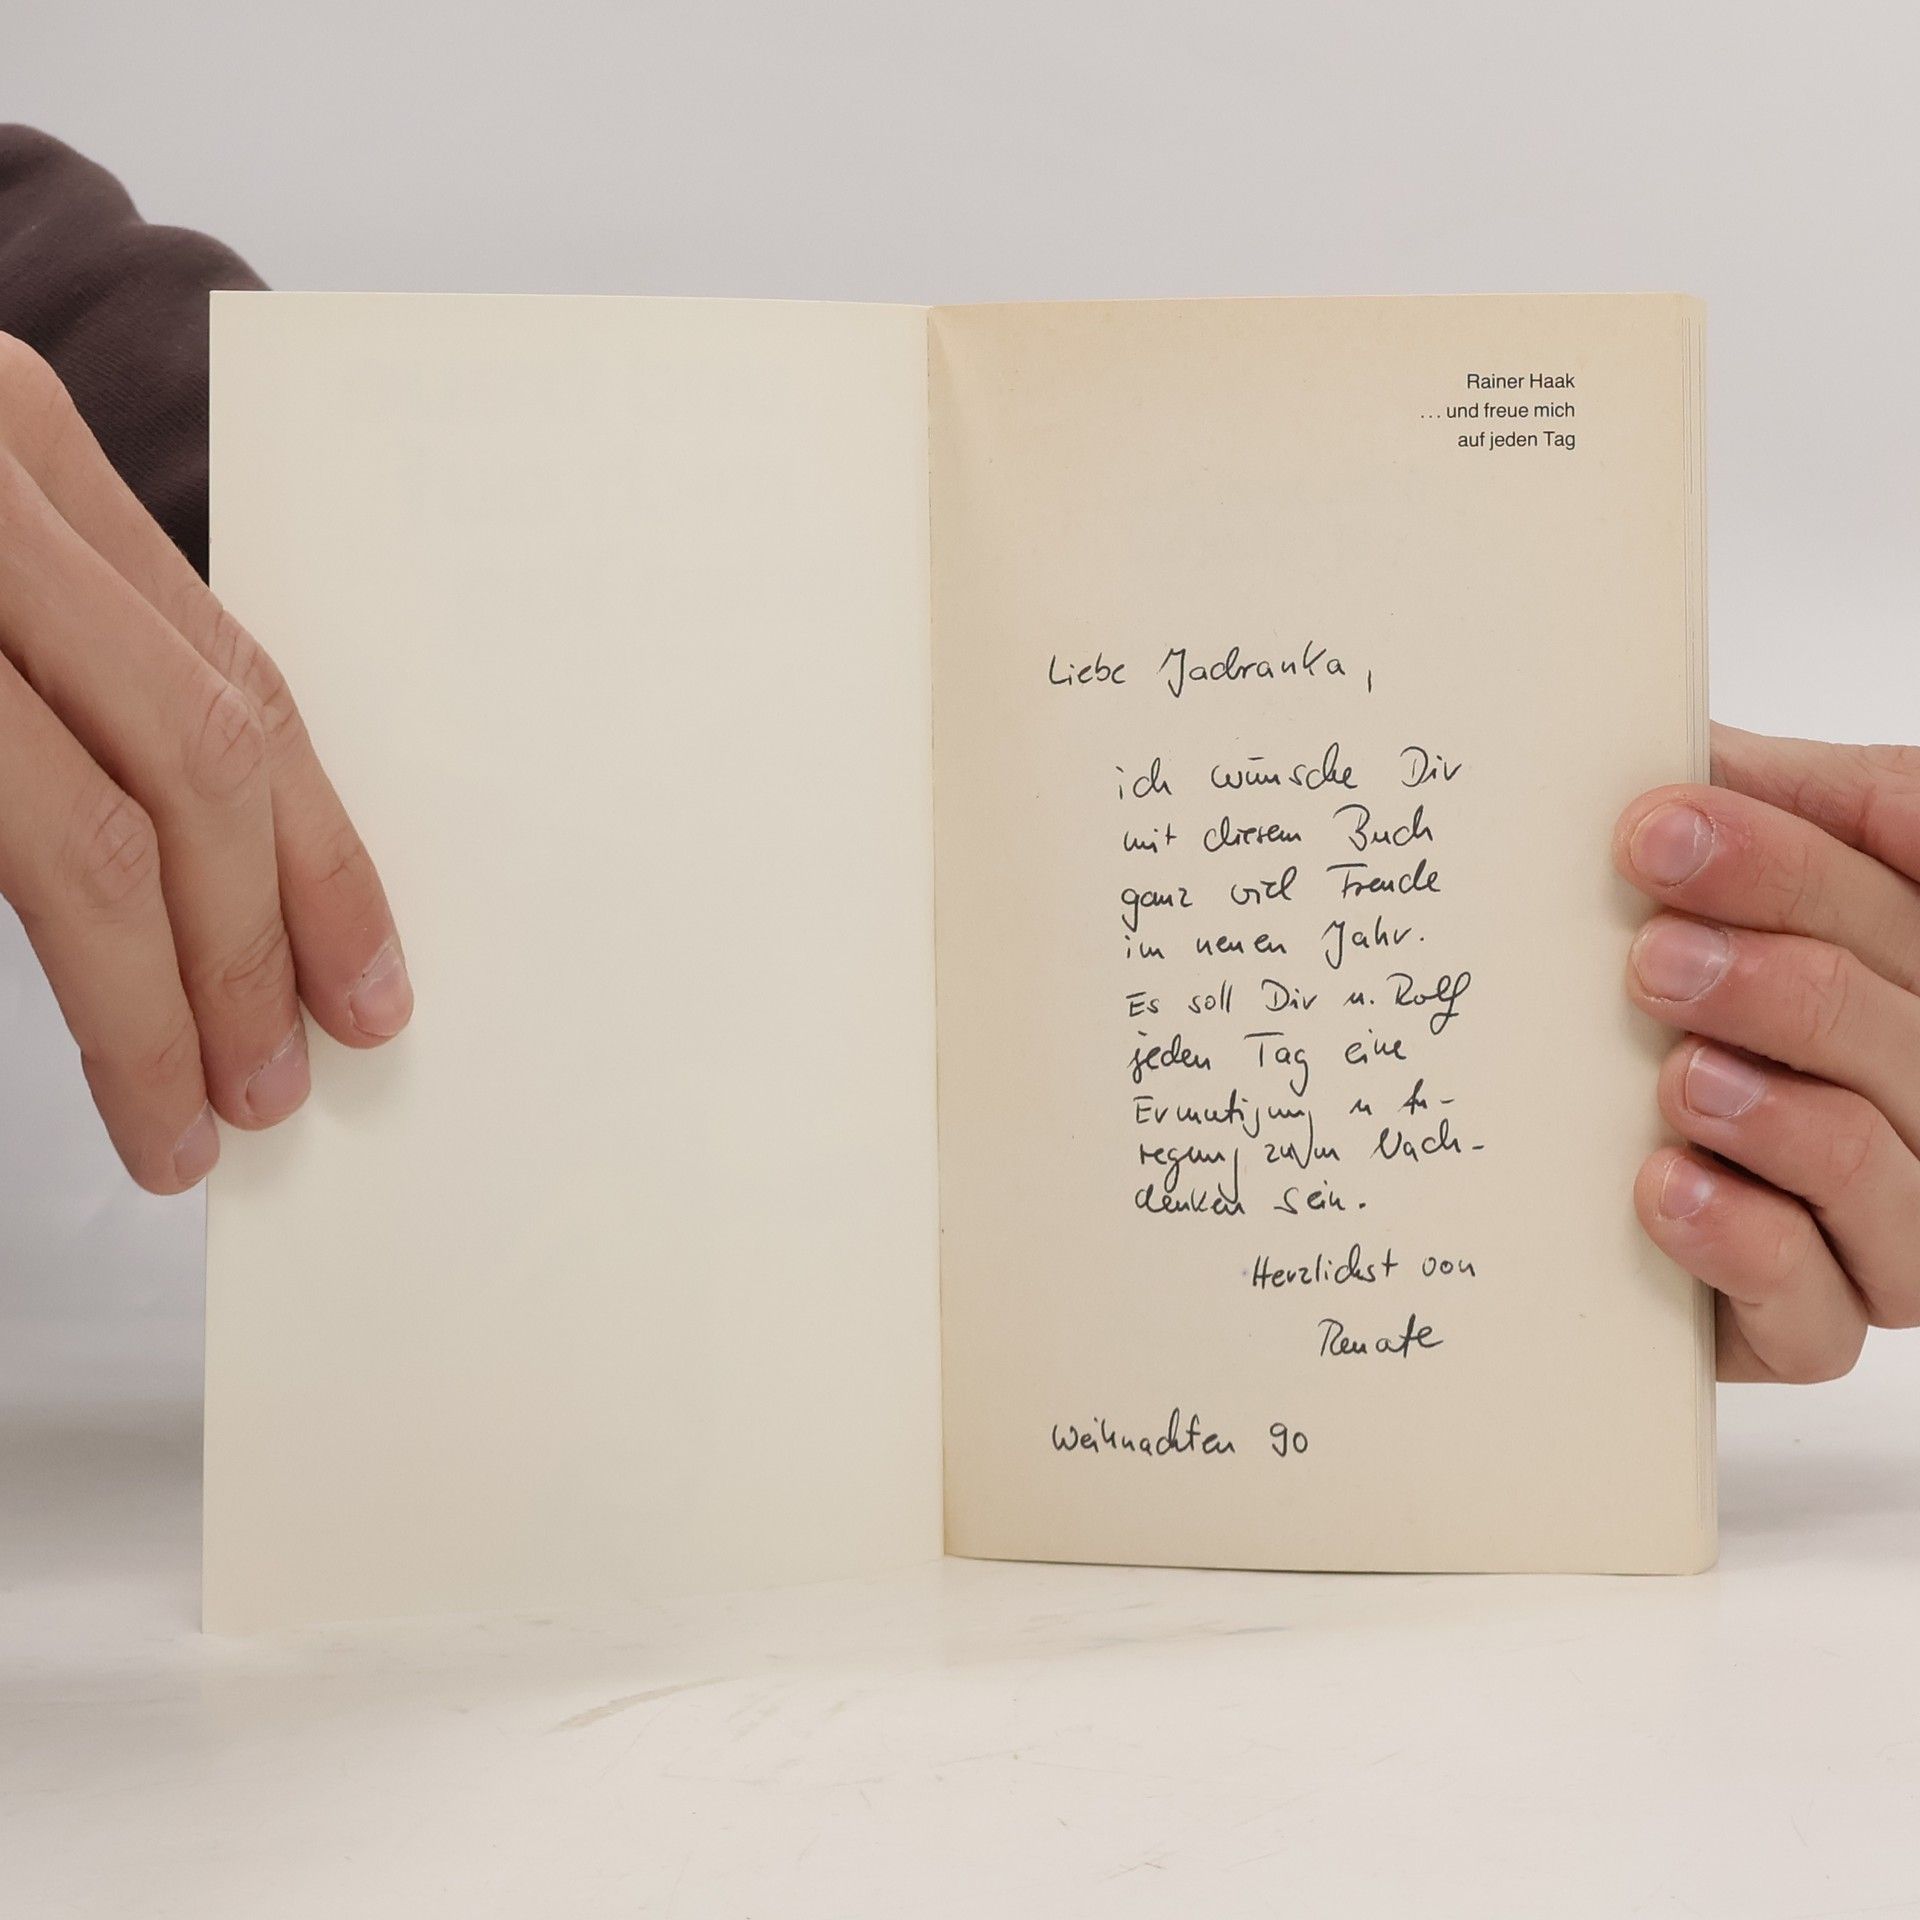 Rainer Haak
... und freue mich
auf jeden Tag
Liebe Jadranka,
ich wünsche Dir
mit diesem Buch
ganz viel Freude
im neuen Jahr.
Es soll Dir u. Rolf
jeden Tag eine
Ermutigung u An-
regung zum Nach-
denken sein.
Herzlichst von
Renate
Weihnachten 90